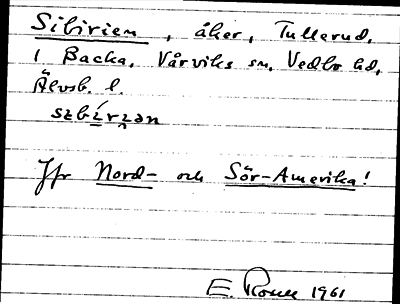 Sibirien, åker, Tullerud,
1 Backa, Vårviks sn, Vedbo hd,
Älvsb. l.
Jfr Nord- och Sör-Amerika!
E. 1961